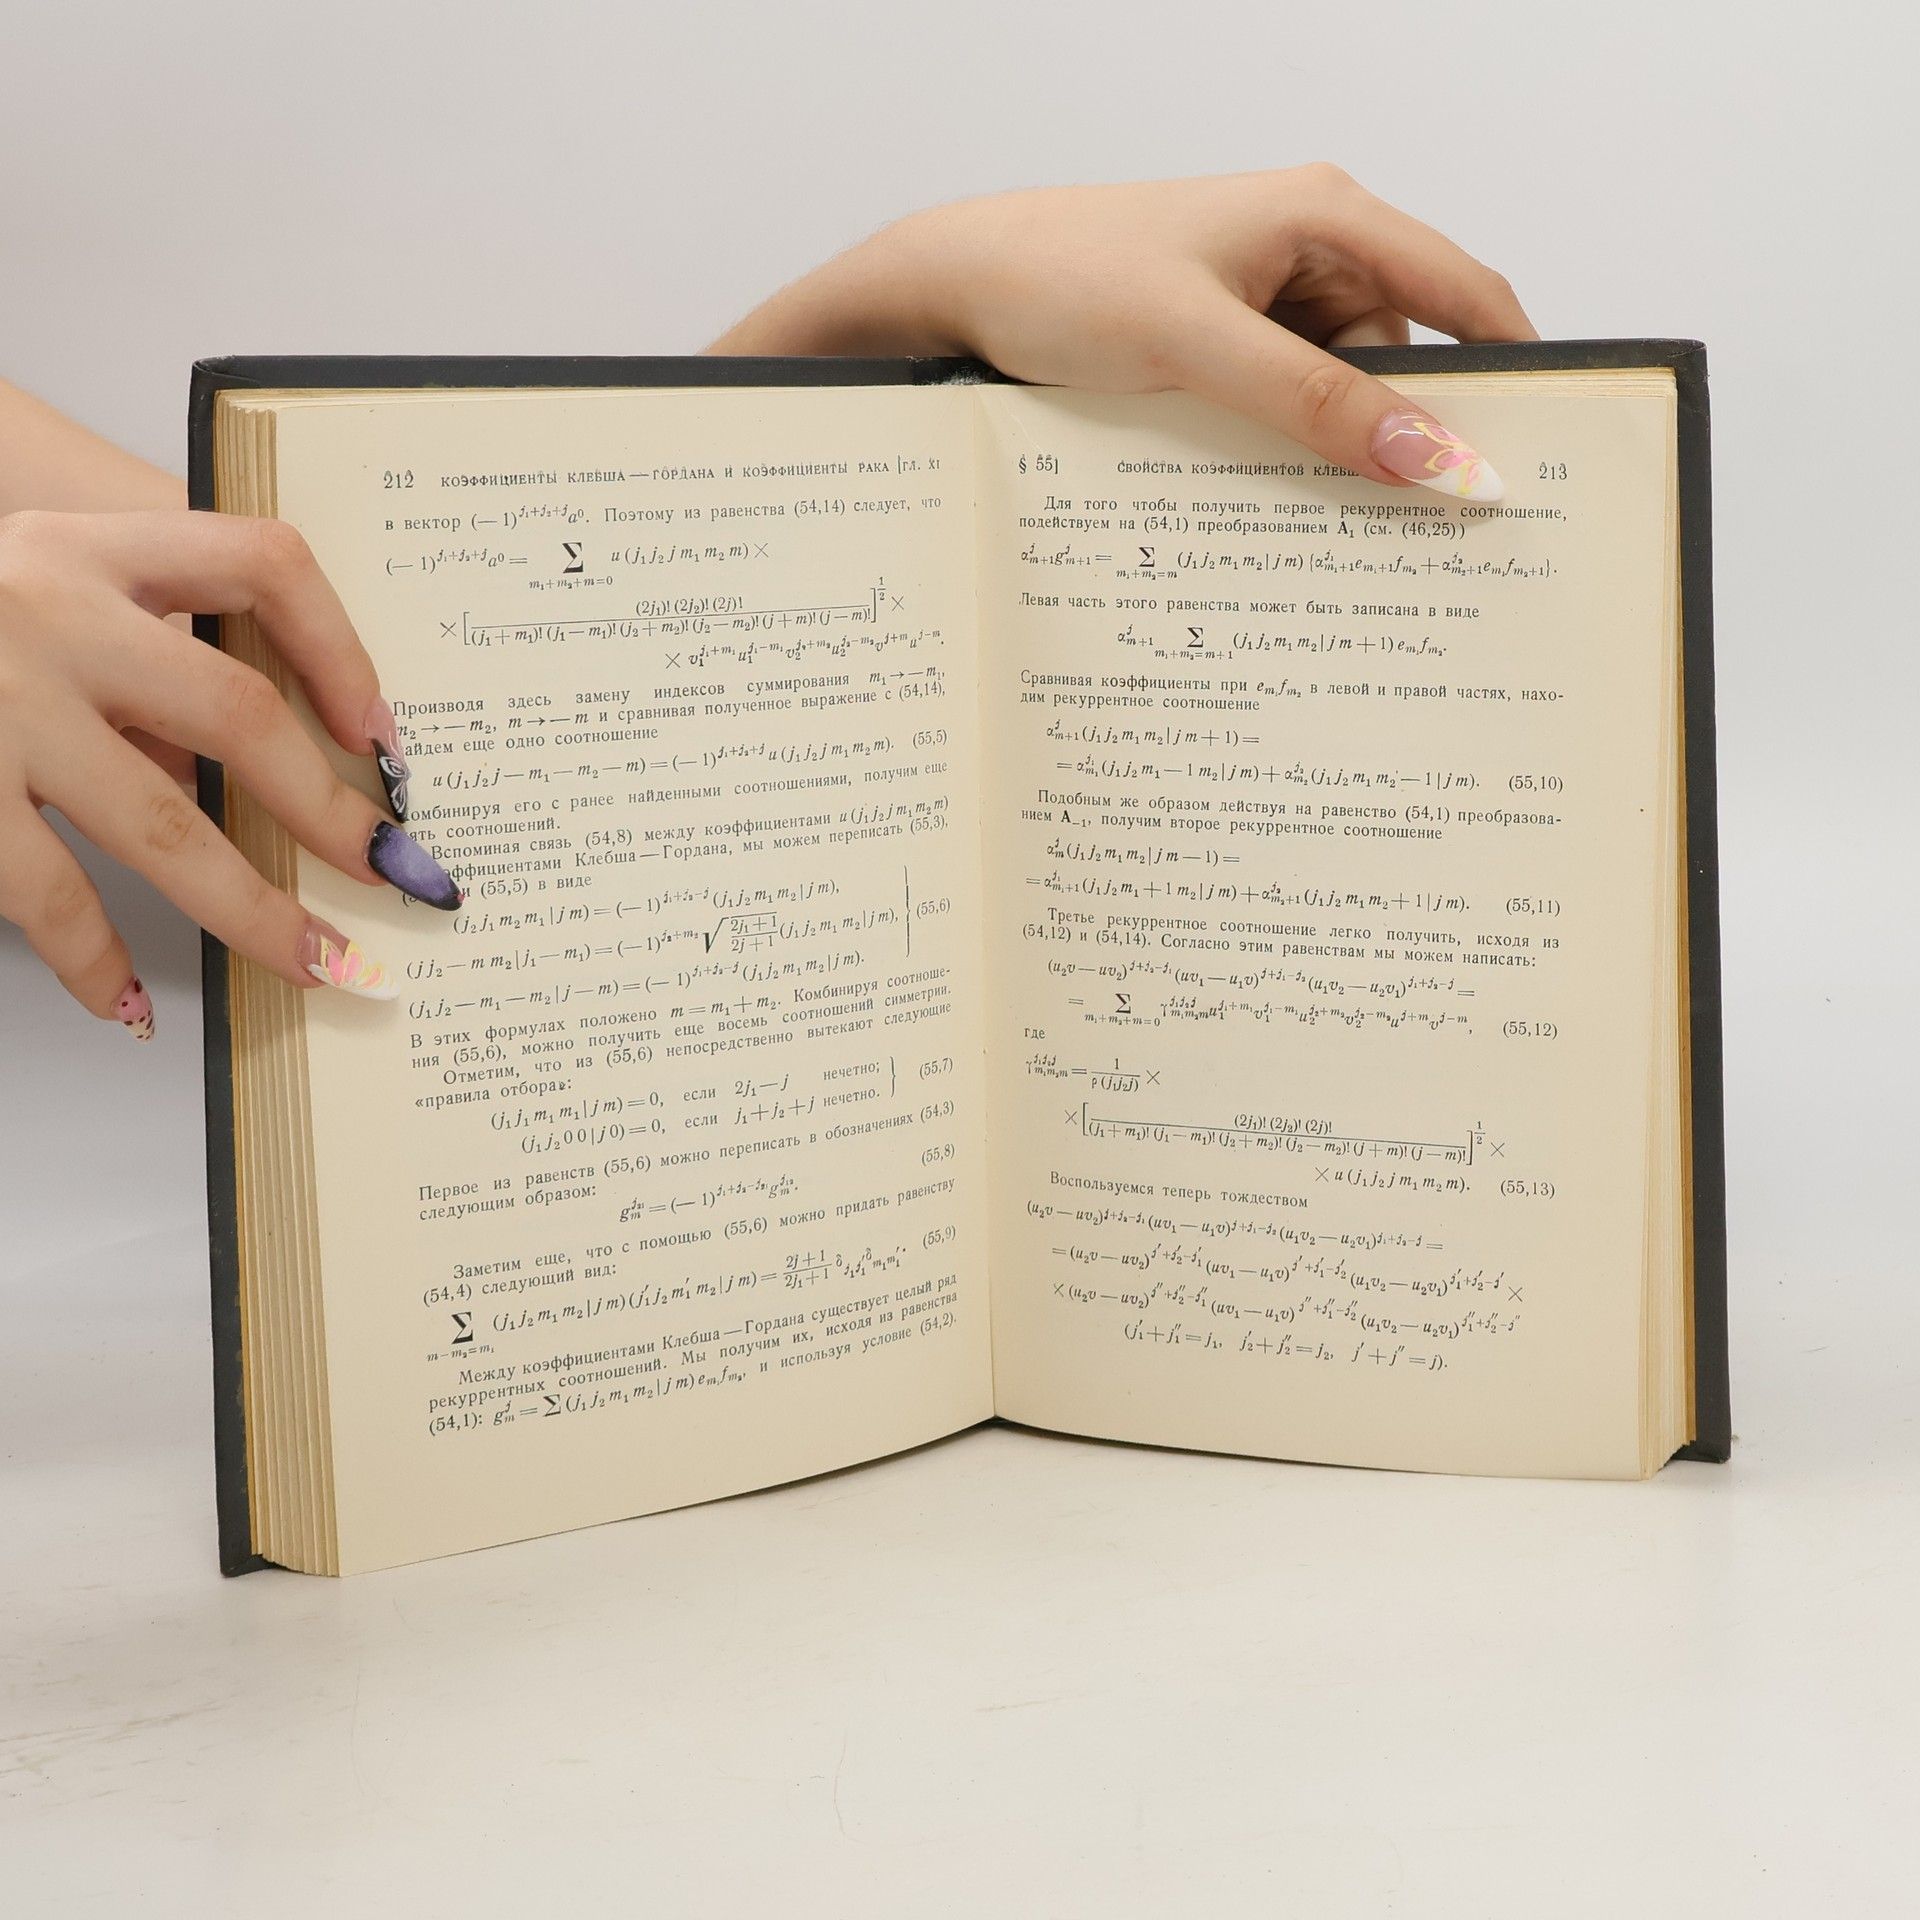 212 КОЭФФИЦИЕНТЫ КЛЕБША — ГОРДАНА И КОЭФФИЦИЕНТЫ РАКА [ГЛ. XI
в вектор (— 1)^{j₁+j₂+j}a⁰. Поэтому из равенства (54,14) следует, что
(— 1)^{j₁+j₂+j}a⁰ = ∑_{m₁+m₂+m=0} u (j₁ j₂ j m₁ m₂ m) ×
× [(2j₁)! (2j₂)! (2j)! / (j₁ + m₁)! (j₁ — m₁)! (j₂ + m₂)! (j₂ — m₂)! (j + m)! (j — m)!]^{1/2} ×
× v₁^{j₁+m₁} u₁^{j₁—m₁} v₂^{j₂+m₂} u₂^{j₂—m₂} v^{j+m} u^{j—m}.
Производя здесь замену индексов суммирования m₁ → — m₁,
m₂ → — m₂, m → — m и сравнивая полученное выражение с (54,14),
айдем еще одно соотношение
u (j₁ j₂ j — m₁ — m₂ — m) = (— 1)^{j₁+j₂+j} u (j₁ j₂ j m₁ m₂ m). (55,5)
омбинируя его с ранее найденными соотношениями, получим еще
ять соотношений.
Вспоминая связь (54,8) между коэффициентами u (j₁ j₂ j m₁ m₂ m)
эффициентами Клебша — Гордана, мы можем переписать (55,3),
и (55,5) в виде
(j₂ j₁ m₂ m₁ | j m) = (— 1)^{j₁+j₂—j} (j₁ j₂ m₁ m₂ | j m),
(j j₂ — m m₂ | j₁ — m₁) = (— 1)^{j₂+m₂} √((2j₁+1)/(2j+1)) (j₁ j₂ m₁ m₂ | j m), } (55,6)
(j₁ j₂ — m₁ — m₂ | j — m) = (— 1)^{j₁+j₂—j} (j₁ j₂ m₁ m₂ | j m).
В этих формулах положено m = m₁ + m₂. Комбинируя соотноше-
ния (55,6), можно получить еще восемь соотношений симметрии.
Отметим, что из (55,6) непосредственно вытекают следующие
«правила отбора»:
(j₁ j₁ m₁ m₁ | j m) = 0, если 2j₁ — j нечетно;
(j₁ j₂ 0 0 | j 0) = 0, если j₁ + j₂ + j нечетно. } (55,7)
Первое из равенств (55,6) можно переписать в обозначениях (54,3)
следующим образом:
g_m^{j₂₁} = (— 1)^{j₁+j₂—j₂₁} g_m^{j₁₂}. (55,8)
Заметим еще, что с помощью (55,6) можно придать равенству
(54,4) следующий вид:
∑_{m—m₂=m₁} (j₁ j₂ m₁ m₂ | j m) (j₁′ j₂ m₁′ m₂ | j m) = (2j + 1)/(2j₁ + 1) δ_{j₁j₁′} δ_{m₁m₁′}. (55,9)
Между коэффициентами Клебша — Гордана существует целый ряд
рекуррентных соотношений. Мы получим их, исходя из равенства
(54,1): g_m^j = ∑ (j₁ j₂ m₁ m₂ | j m) e_{m₁} f_{m₂}, и используя условие (54,2).
§ 55] СВОЙСТВА КОЭФФИЦИЕНТОВ 213
Для того чтобы получить первое рекуррентное соотношение,
подействуем на (54,1) преобразованием A₁ (см. (46,25))
α_{m+1}^j g_{m+1}^j = ∑_{m₁+m₂=m} (j₁ j₂ m₁ m₂ | j m) {α_{m₁+1}^{j₁} e_{m₁+1} f_{m₂} + α_{m₂+1}^{j₂} e_{m₁} f_{m₂+1}}.
Левая часть этого равенства может быть записана в виде
α_{m+1}^j ∑_{m₁+m₂=m+1} (j₁ j₂ m₁ m₂ | j m + 1) e_{m₁} f_{m₂}.
Сравнивая коэффициенты при e_{m₁} f_{m₂} в левой и правой частях, нахо-
дим рекуррентное соотношение
α_{m+1}^j (j₁ j₂ m₁ m₂ | j m + 1) =
= α_{m₁}^{j₁} (j₁ j₂ m₁ — 1 m₂ | j m) + α_{m₂}^{j₂} (j₁ j₂ m₁ m₂ — 1 | j m). (55,10)
Подобным же образом действуя на равенство (54,1) преобразова-
нием A₋₁, получим второе рекуррентное соотношение
α_m^j (j₁ j₂ m₁ m₂ | j m — 1) =
= α_{m₁+1}^{j₁} (j₁ j₂ m₁ + 1 m₂ | j m) + α_{m₂+1}^{j₂} (j₁ j₂ m₁ m₂ + 1 | j m). (55,11)
Третье рекуррентное соотношение легко получить, исходя из
(54,12) и (54,14). Согласно этим равенствам мы можем написать:
(u₂v — uv₂)^{j+j₂—j₁} (uv₁ — u₁v)^{j+j₁—j₂} (u₁v₂ — u₂v₁)^{j₁+j₂—j} =
= ∑_{m₁+m₂+m=0} γ_{m₁m₂m}^{j₁j₂j} u₁^{j₁+m₁} v₁^{j₁—m₁} u₂^{j₂+m₂} v₂^{j₂—m₂} u^{j+m} v^{j—m}, (55,12)
где
γ_{m₁m₂m}^{j₁j₂j} = 1/(ρ (j₁j₂j)) ×
× [(2j₁)! (2j₂)! (2j)! / (j₁ + m₁)! (j₁ — m₁)! (j₂ + m₂)! (j₂ — m₂)! (j + m)! (j — m)!]^{1/2} ×
× u (j₁ j₂ j m₁ m₂ m). (55,13)
Воспользуемся теперь тождеством
(u₂v — uv₂)^{j+j₂—j₁} (uv₁ — u₁v)^{j+j₁—j₂} (u₁v₂ — u₂v₁)^{j₁+j₂—j} =
= (u₂v — uv₂)^{j′+j₂′—j₁′} (uv₁ — u₁v)^{j′+j₁′—j₂′} (u₁v₂ — u₂v₁)^{j₁′+j₂′—j′} ×
× (u₂v — uv₂)^{j″+j₂″—j₁″} (uv₁ — u₁v)^{j″+j₁″—j₂″} (u₁v₂ — u₂v₁)^{j₁″+j₂″—j″}
(j₁′ + j₁″ = j₁, j₂′ + j₂″ = j₂, j′ + j″ = j).